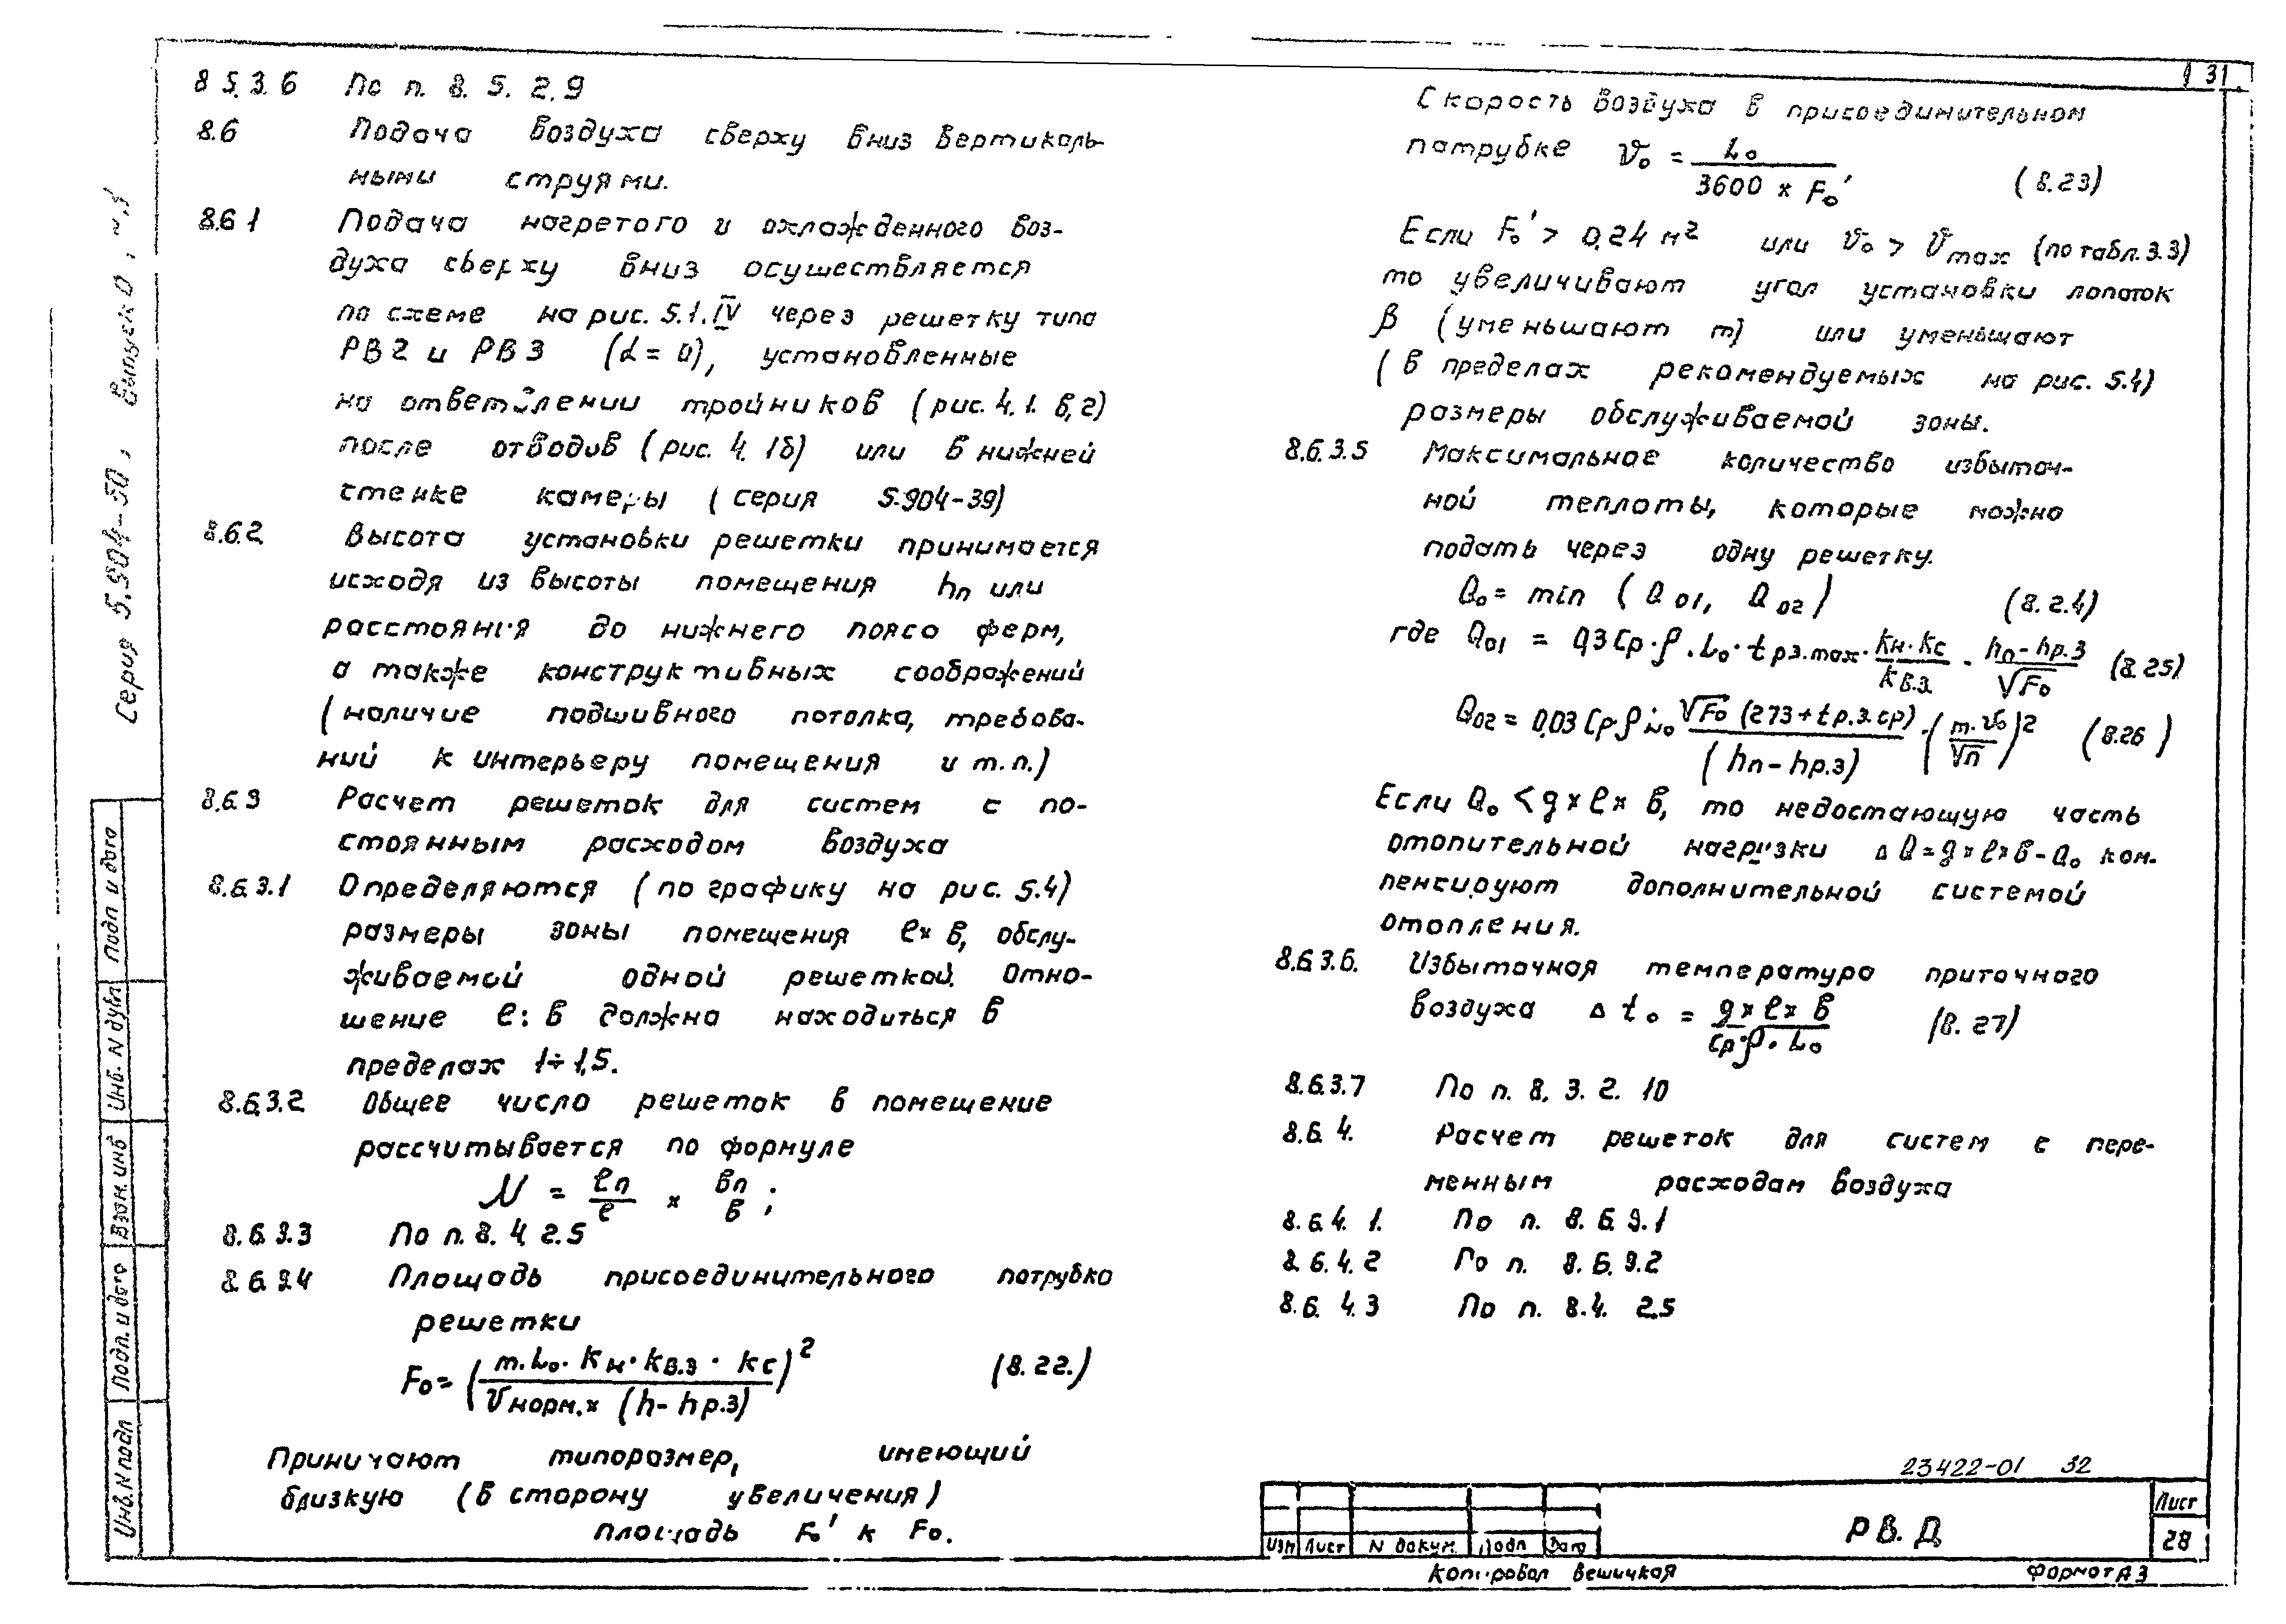 31
8 5. 3. 6 По п. 8. 5. 2. 9
8.6 Подача воздуха сверху вниз вертикаль-
ными струями.
8.6 1 Подача нагретого и охлажденного воз-
духа сверху вниз осуществляется
по схеме на рис. 5.1. IV через решетку типа
РВ2 и РВ3 (α = 0), установленные
на ответвлении тройников (рис. 4. 1. в, г)
после отводов (рис. 4. 1б) или в нижней
стенке камеры (серия 5.904-39)
8.6.2 Высота установки решетки принимается
исходя из высоты помещения hп или
расстояния до нижнего пояса ферм,
а также конструктивных соображений
(наличие подшивного потолка, требова-
ний к интерьеру помещения и т. п.)
8.6.3 Расчет решеток для систем с по-
стоянным расходом воздуха
8.6.3.1 Определяются (по графику на рис. 5.4)
размеры зоны помещения ℓ× в, обслу-
живаемой одной решеткой. Отно-
шение ℓ: в должно находиться в
пределах 1÷1,5.
8.6.3.2 Общее число решеток в помещение
рассчитывается по формуле
N = ℓп/ℓ × вп/в ;
8.6.3.3 По п. 8. 4. 2. 5
8. 6. 3.4 Площадь присоединительного патрубка
решетки
Fo = (m. Lo. Кн. Кв.з. Кс / Vнорм. × (h - hр.з))² (8. 22.)
Принимают типоразмер, имеющий
близкую (в сторону увеличения)
площадь Fo' к Fo.
Скорость воздуха в присоединительном
патрубке Vo = Lo / 3600 × Fo' (8.23)
Если Fo' > 0,24 м² или Vo > Vmax (по табл. 3.3)
то увеличивают угол установки лопаток
β (уменьшают m) или уменьшают
(в пределах рекомендуемых на рис. 5.4)
размеры обслуживаемой зоны.
8.6.3.5 Максимальное количество избыточ-
ной теплоты, которые можно
подать через одну решетку.
Qo = min (Q 01, Q 02) (8. 2.4)
где Q01 = 0,3 Cp · ρ . Lo · t рз.max · Кн · Кс / Кв.з. · hп - hр.з / √Fo (8.25)
Q02 = 0,03 Cp · ρ · Lo √Fo (273 + tр.з.ср) / (hп - hр.з) · (m. Vo / √n)² (8.26)
Если Qo < g × ℓ × в, то недостающую часть
отопительной нагрузки Δ Q = g × ℓ × в - Qo ком-
пенсируют дополнительной системой
отопления.
8.6.3.6. Избыточная температура приточного
воздуха Δ t o = g × ℓ × в / Cp · ρ · Lo (8. 27)
8.6.3.7 По п. 8. 3. 2. 10
8.6. 4. Расчет решеток для систем с пере-
менным расходам воздуха
8. 6.4. 1. По п. 8. 6. 3. 1
8. 6. 4. 2 По п. 8. 6. 3.2
8. 6. 4. 3 По п. 8.4. 2.5
Серия 5.904-50, Выпуск 0,
Подп и дата
Инв. N дубл
Взам. инв
Подп. и дата
Инв. N подл
23422-01 32
Изм Лист N докум. Подп Дата
РВ. Д
Лист
28
Копировал Вешицкая Формат А3